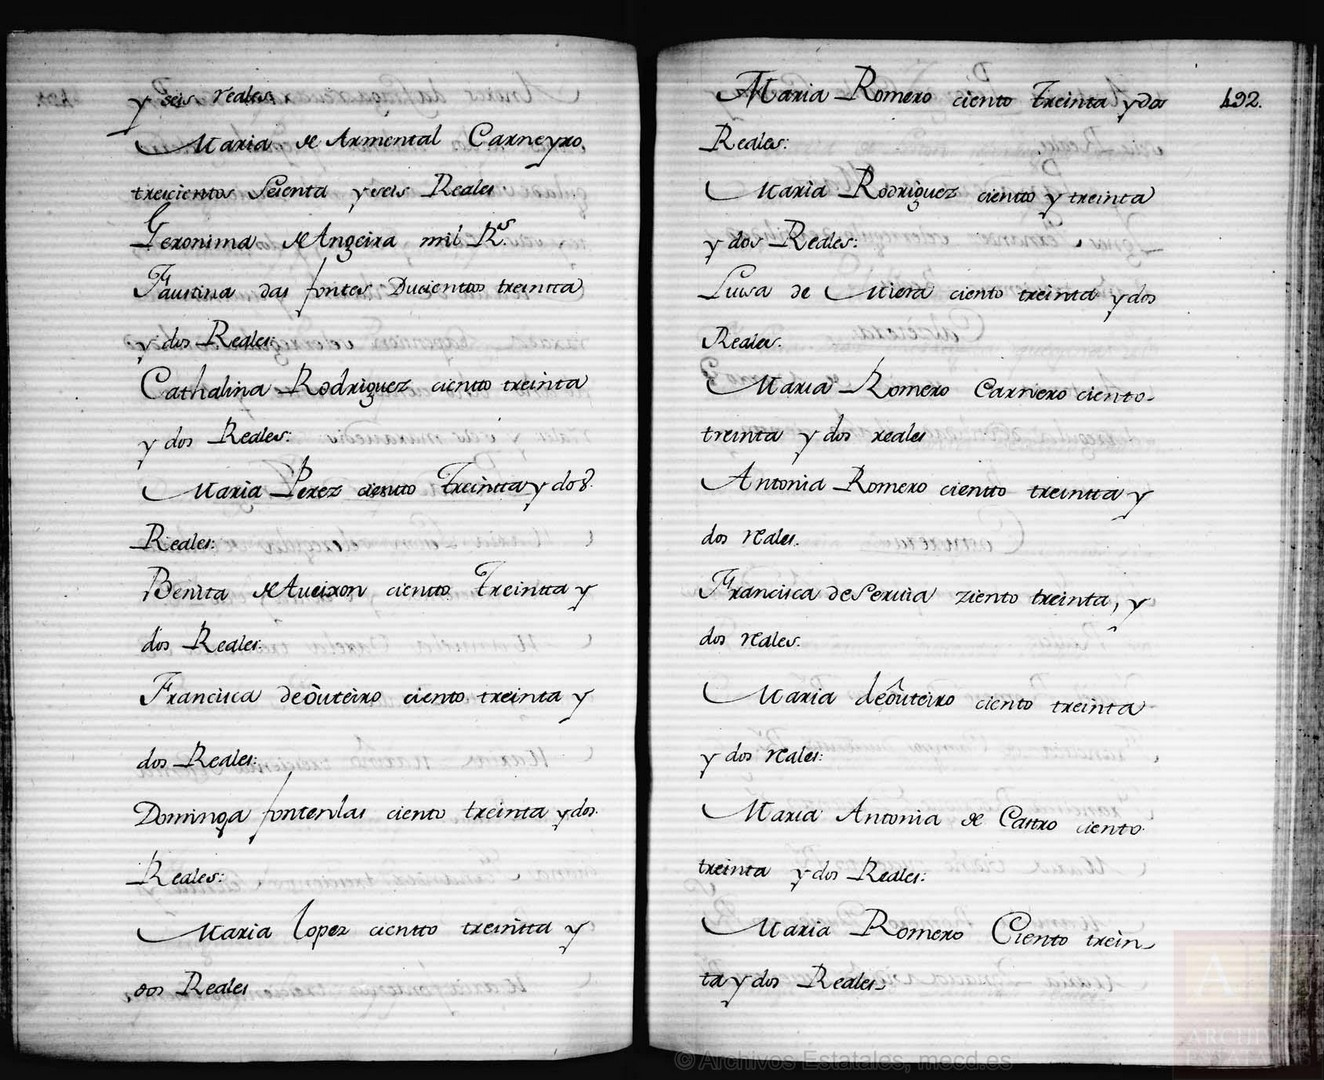 y seis reales
Maria de Armental Carneyro
trescientos sesenta y seis Reales
Geronima de Angeira mil R.s
Faustina das fontes Ducienttos treintta
y dos Reales:
Cathalina Rodriguez cientto treinta
y dos Reales:
Maria Perez ciento Treintta y dos.
Reales:
Benita de Aueixon ciento Treintta y
dos Reales:
Francisca de ôuteiro ciento treinta y
dos Reales:
Dominga fontenlas ciento treinta y dos.
Reales:
Maria lopez cientto treintta y
dos Reales
Maria Romero ciento treinta y dos 492.
Reales:
Maria Rodriguez ciento y treinta
y dos Reales:
Luisa de Miera ciento treinta y dos
Reales.
Maria Romero Carnero ciento-
treinta y dos reales
Antonia Romero cientto treintta y
dos reales.
Francisca de Seruia ziento treinta, y
dos reales.
Maria de ôuteiro ciento treinta
y dos reales:
Maria Antonia de Castro ciento
treinta y dos Reales:
Maria Romero Ciento trein-
ta y dos Reales
© Archivos Estatales, mecd.es